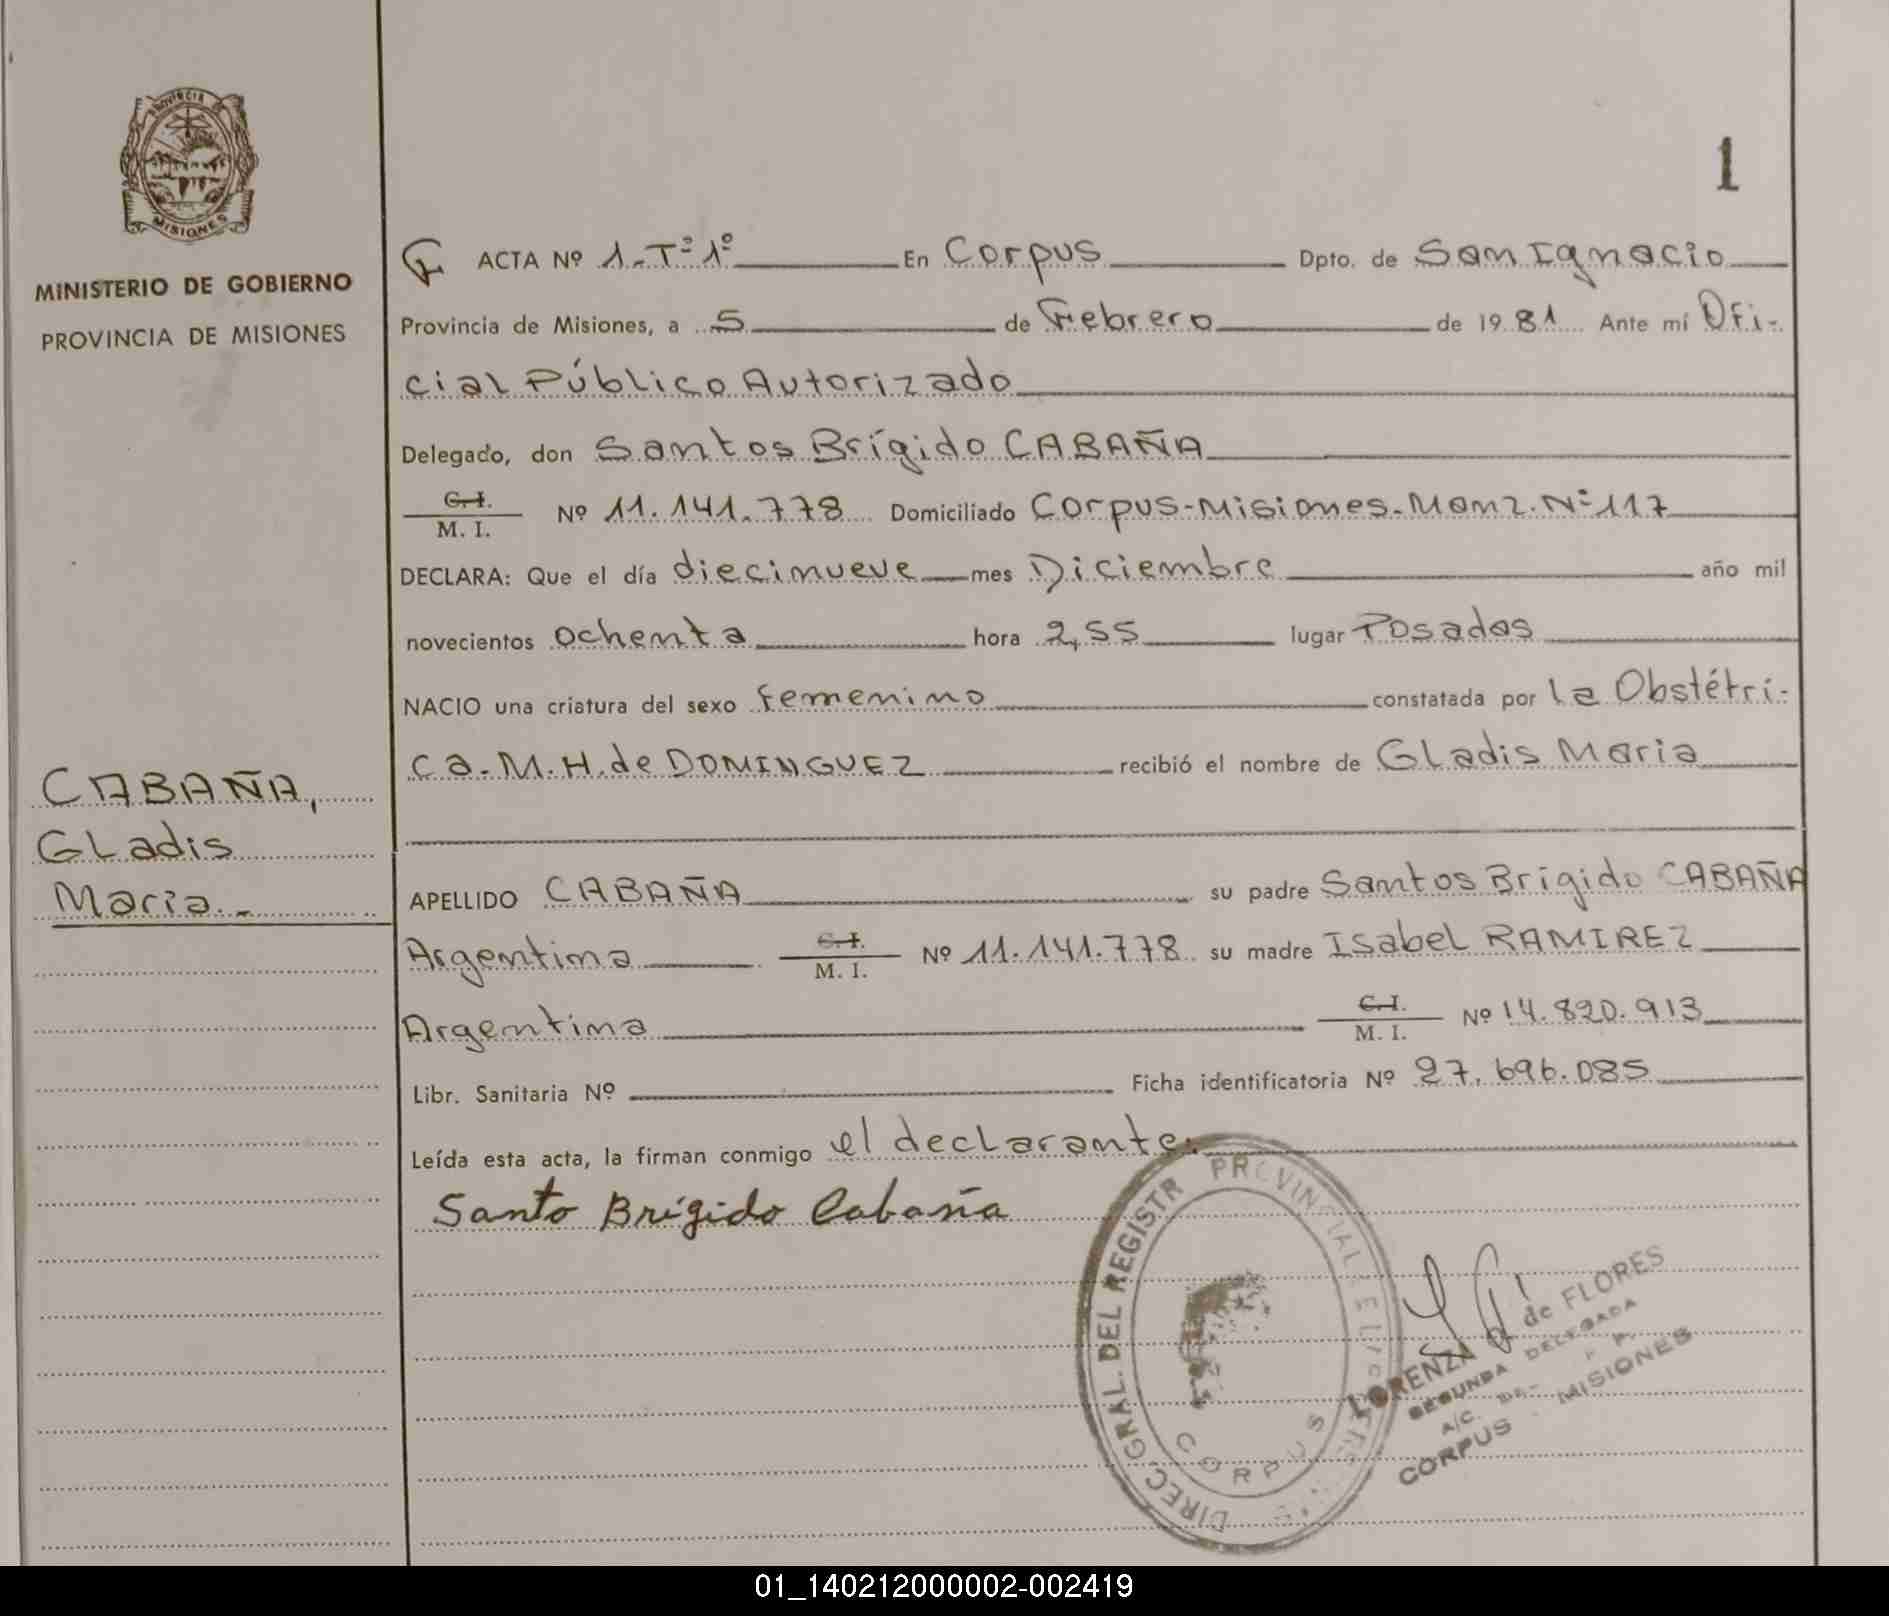 PROVINCIA
MISIONES
MINISTERIO DE GOBIERNO
PROVINCIA DE MISIONES
CABAÑA,
Gladis
Maria.-
1
ACTA Nº 1.-Tº 1º En Corpus Dpto. de San Ignacio
Provincia de Misiones, a 5 de Febrero de 1981 Ante mí Ofi-
cial Público Autorizado
Delegado, don Santos Brígido CABAÑA
C. I.
M. I. Nº 11.141.778 Domiciliado Corpus-Misiones-Manz. Nº 117
DECLARA: Que el día diecinueve mes Diciembre año mil
novecientos ochenta hora 2,55 lugar Posadas
NACIO una criatura del sexo femenino constatada por la Obstétri-
ca. M. H. de DOMINGUEZ recibió el nombre de Gladis Maria
APELLIDO CABAÑA su padre Santos Brígido CABAÑA
Argentina C. I. M. I. Nº 11.141.778 su madre Isabel RAMIREZ
Argentina C. I. M. I. Nº 14.820.913
Libr. Sanitaria Nº Ficha identificatoria Nº 27.696.085
Leída esta acta, la firman conmigo el declarante.
Santo Brígido Cabaña
DIREC. GRAL. DEL REGISTR PROVINCIAL
CORPUS
LORENZA G. de FLORES
SEGUNDA DELEGADA
A/C. DE-
CORPUS - MISIONES
01_140212000002-002419